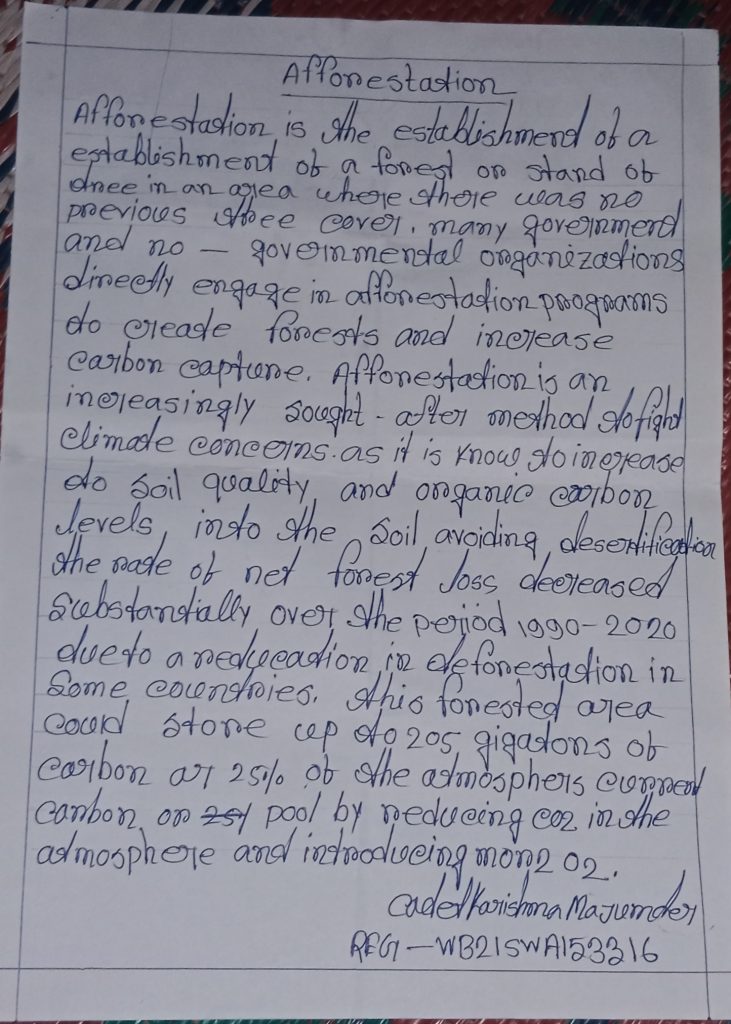 Afforestation
Afforestation is the establishment of a
establishment of a forest or stand of
tree in an area where there was no
previous tree cover. many government
and no - governmental organizations
directly engage in afforestation programs
to create forests and increase
carbon capture. Afforestation is an
increasingly sought - after method to fight
climate concerns. as it is know to increase
to soil quality and organic carbon
levels into the soil avoiding desertification
the rate of net forest loss decreased
substantially over the period 1990-2020
due to a reducation in deforestation in
some countries. this forested area
could store up to 205 gigatons of
carbon ar 25% of the atmosphers current
carbon or pool by reducing co2 in the
atmosphere and introducing more O2.
Cadet Karishma Majumder
REG - WB21SWA153316